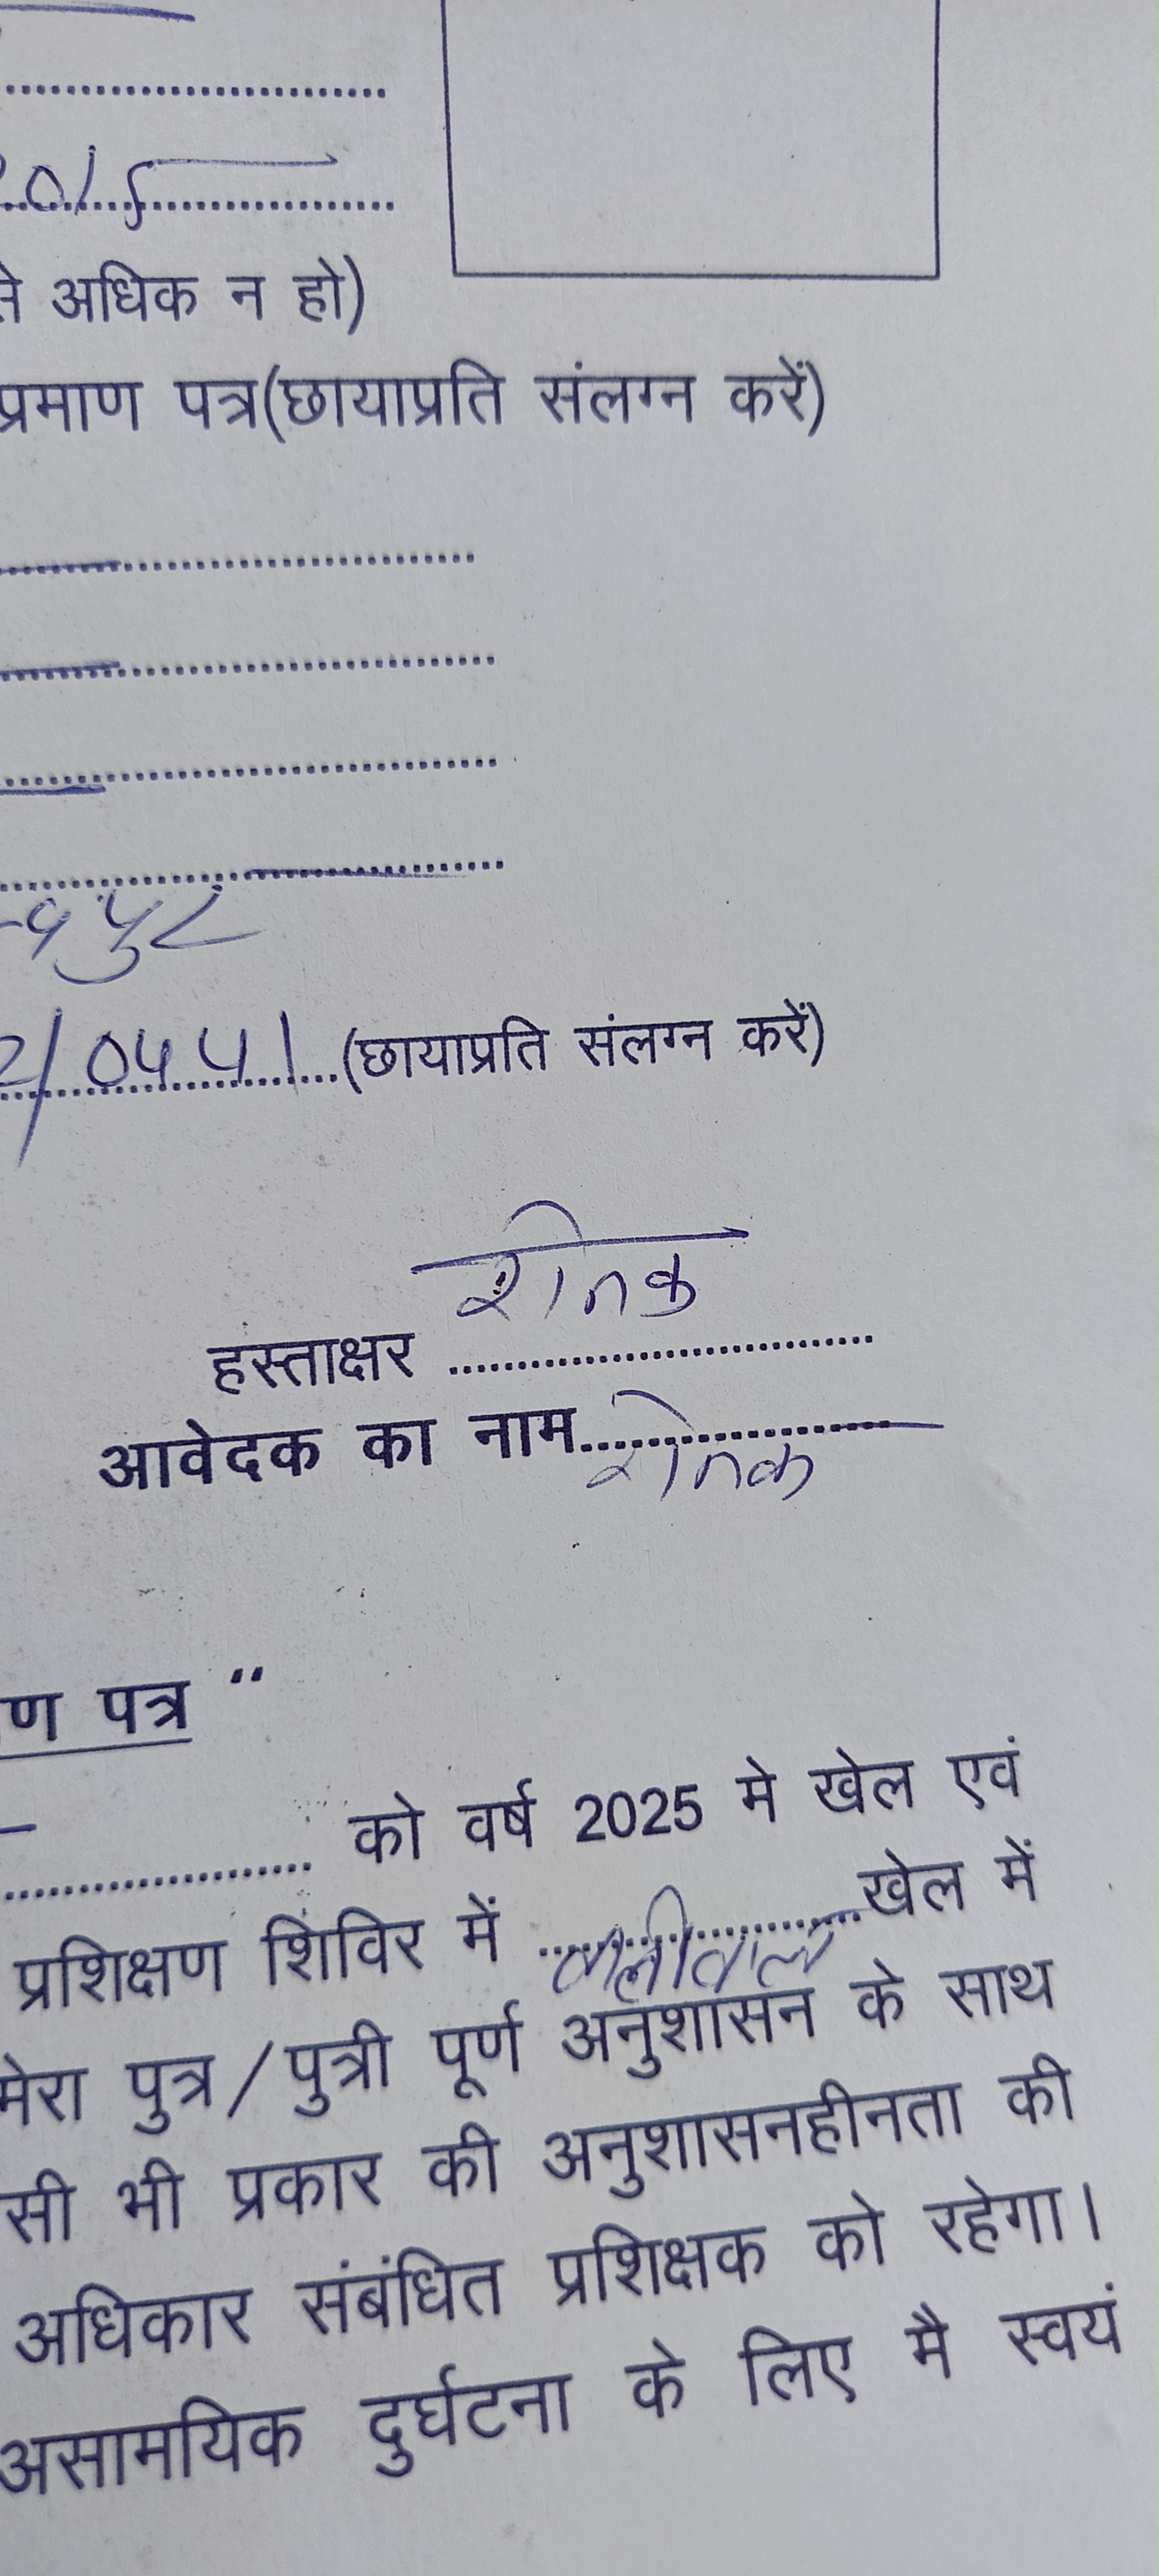 2015
से अधिक न हो)
प्रमाण पत्र(छायाप्रति संलग्न करें)
पुर
(छायाप्रति संलग्न करें)
रोनक
हस्ताक्षर
आवेदक का नाम रोनक
ण पत्र "
को वर्ष 2025 मे खेल एवं
प्रशिक्षण शिविर में वालीवाल खेल में
मेरा पुत्र/पुत्री पूर्ण अनुशासन के साथ
सी भी प्रकार की अनुशासनहीनता की
अधिकार संबंधित प्रशिक्षक को रहेगा।
असामयिक दुर्घटना के लिए मै स्वयं